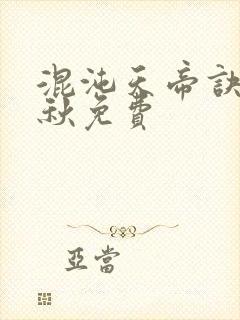 混沌天帝訣
秋免費
亞當